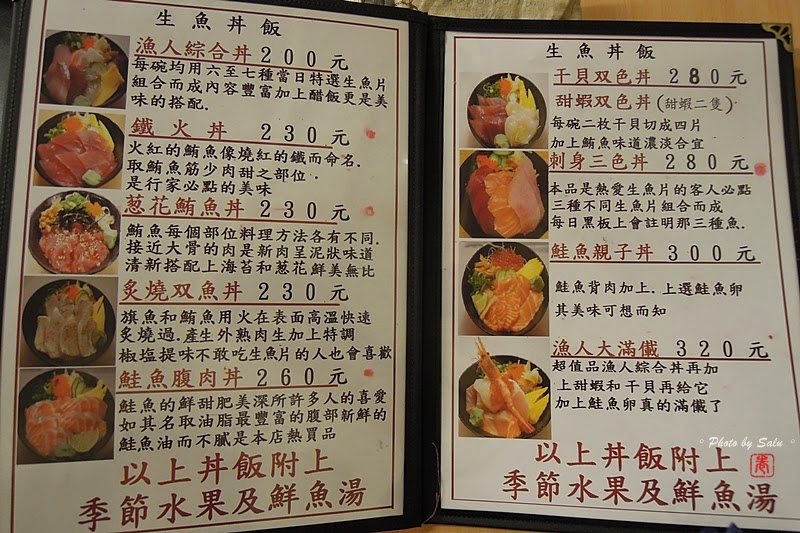 生魚丼飯
漁人綜合丼 200元
每碗均用六至七種當日特選生魚片
組合而成內容豐富加上醋飯更是美
味的搭配.
鐵火丼 230元
火紅的鮪魚像燒紅的鐵而命名.
取鮪魚筋少肉甜之部位.
是行家必點的美味
葱花鮪魚丼 230元
鮪魚每個部位料理方法各有不同.
接近大骨的肉是新肉呈泥狀味道
清新搭配上海苔和葱花鮮美無比
炙燒双魚丼 230元
旗魚和鮪魚用火在表面高溫快速
炙燒過.產生外熟肉生加上特調
椒塩提味不敢吃生魚片的人也會喜歡
鮭魚腹肉丼 260元
鮭魚的鮮甜肥美深所許多人的喜愛
如其名取油脂最豐富的腹部新鮮的
鮭魚油而不膩是本店熱買品
以上丼飯附上
季節水果及鮮魚湯
生魚丼飯
干貝双色丼 280元
甜蝦双色丼(甜蝦二隻)
每碗二枚干貝切成四片
加上鮪魚味道濃淡合宜
刺身三色丼 280元
本品是熱愛生魚片的客人必點
三種不同生魚片組合而成
每日黑板上會註明那三種魚.
鮭魚親子丼 300元
鮭魚背肉加上.上選鮭魚卵
其美味可想而知
漁人大滿儎 320元
超值品漁人綜合丼再加
上甜蝦和干貝再給它
加上鮭魚卵真的滿儎了
以上丼飯附上
季節水果及鮮魚湯
Photo by Salu